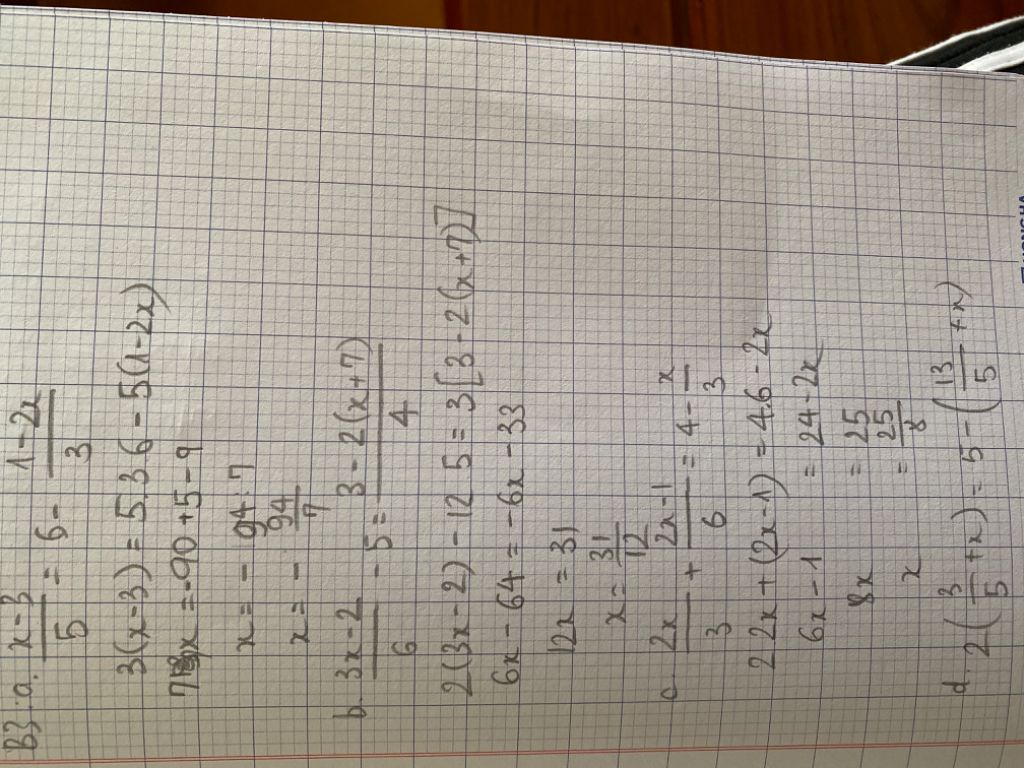 B3: a. x-3/5 = 6 - 1-2x/3
3(x-3) = 5.3 6 - 5(1-2x)
7x = -90+5-9
x = - 94 : 7
x = - 94/7
b. 3x-2/6 - 5 = 3-2(x+7)/4
2(3x-2) - 12 5 = 3[3-2(x+7)]
6x - 64 = -6x - 33
12x = 31
x = 31/12
c 2x/3 + 2x-1/6 = 4 - x/3
2 2x + (2x-1) = 4.6 - 2x
6x - 1 = 24 - 2x
8x = 25
x = 25/8
d. 2(3/5 + x) = 5 - (13/5 + x)